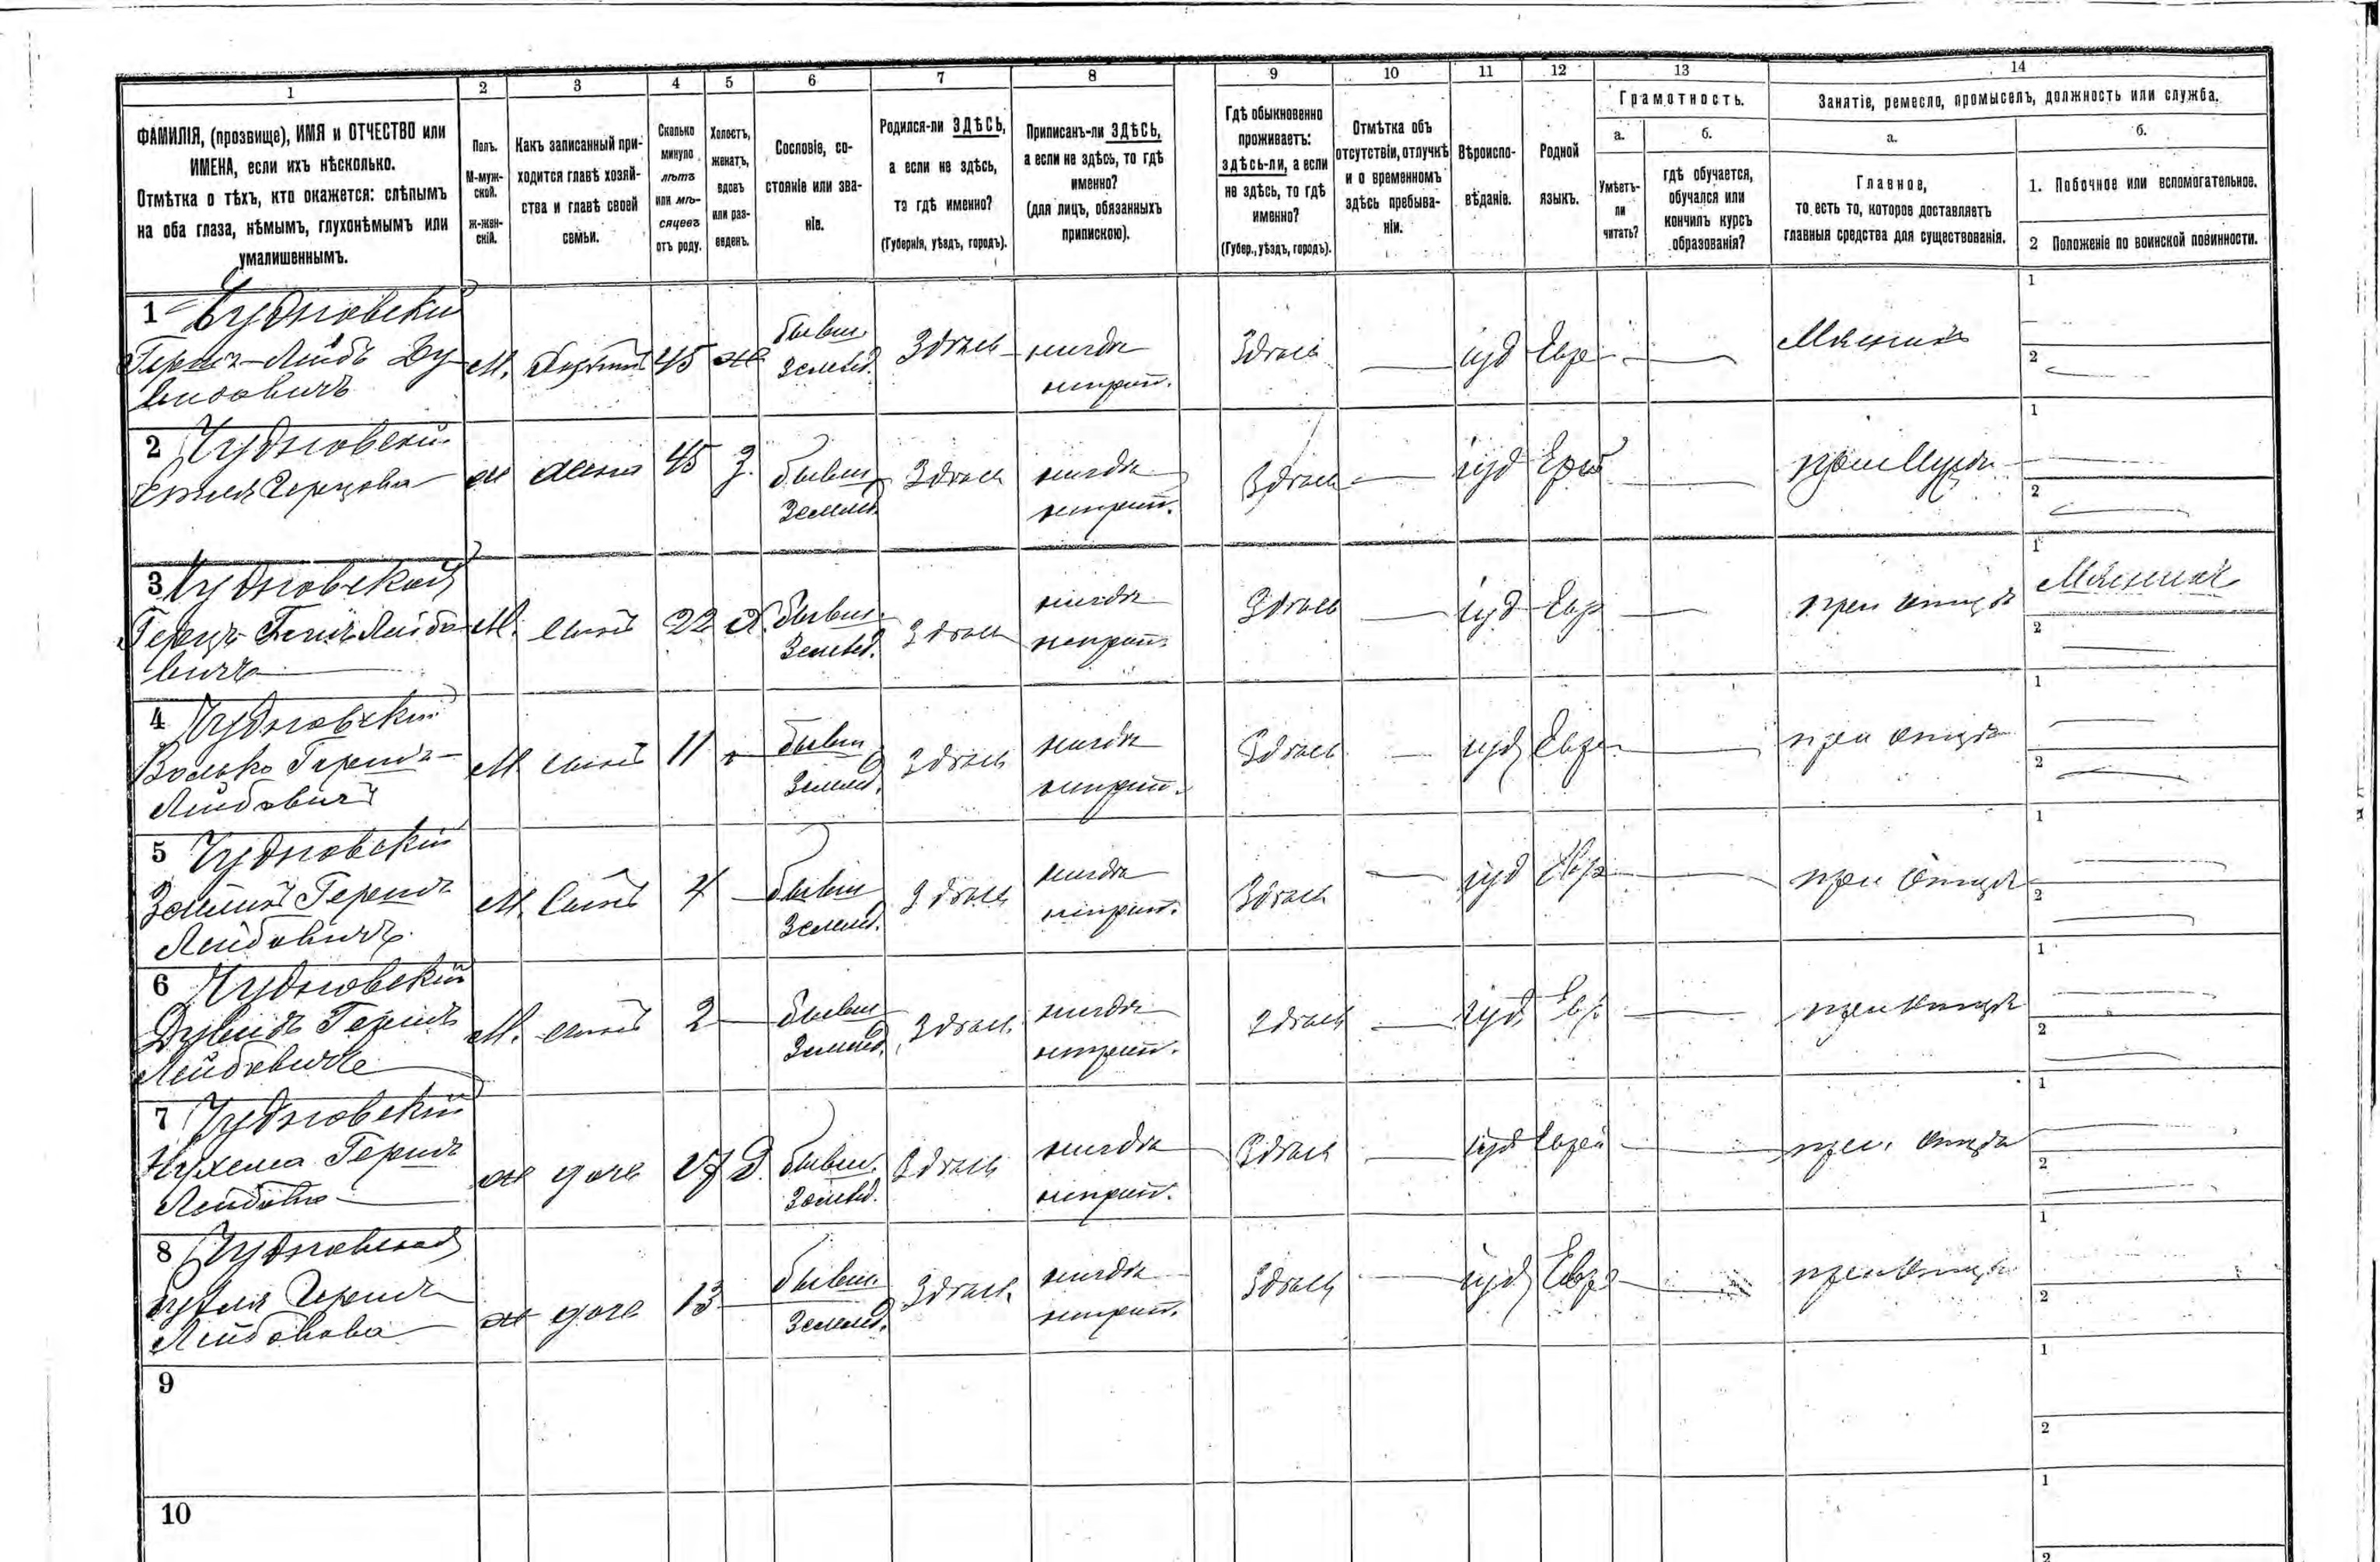 1 2 3 4 5 6 7 8 9 10 11 12 13 14
ФАМИЛІЯ, (прозвище), ИМЯ и ОТЧЕСТВО или
ИМЕНА, если ихъ нѣсколько.
Отмѣтка о тѣхъ, кто окажется: слѣпымъ
на оба глаза, нѣмымъ, глухонѣмымъ или
умалишеннымъ.
Полъ.
М-муж-
ской.
ж-жен-
скій.
Какъ записанный при-
ходится главѣ хозяй-
ства и главѣ своей
семьи.
Сколько
минуло
лѣтъ
или мѣ-
сяцевъ
отъ роду.
Холостъ,
женатъ,
вдовъ
или раз-
веденъ.
Сословіе, со-
стояніе или зва-
ніе.
Родился-ли ЗДѢСЬ,
а если не здѣсь,
то гдѣ именно?
(Губернія, уѣздъ, городъ).
Приписанъ-ли ЗДѢСЬ,
а если не здѣсь, то гдѣ
именно?
(для лицъ, обязанныхъ
припискою).
Гдѣ обыкновенно
проживаетъ:
здѣсь-ли, а если
не здѣсь, то гдѣ
именно?
(Губер., уѣздъ, городъ).
Отмѣтка объ
отсутствіи, отлучкѣ
и о временномъ
здѣсь пребыва-
ніи.
Вѣроиспо-
вѣданіе.
Родной
языкъ.
Грамотность.
а.
Умѣетъ-
ли
читать?
б.
гдѣ обучается,
обучался или
кончилъ курсъ
образованія?
Занятіе, ремесло, промыселъ, должность или служба.
а.
Главное,
то есть то, которое доставляетъ
главныя средства для существованія.
б.
1. Побочное или вспомогательное.
2 Положеніе по воинской повинности.
1 Чудновскій
Герш-Лейбъ Ду-
видовичъ
М. 45 ж
бывш.
Землевд.
Здѣсь
нигдѣ
неприп.
Здѣсь
іуд Евре
1
2
2 Чудновскій
Герцова
ж жена 45 З.
бывш
Землевд.
Здѣсь
нигдѣ
неприп.
Здѣсь
іуд Евр
при Мужѣ
1
2
3 Чудновской
Лейбо-
вичъ
М. сынъ 22 Х.
бывш.
Землевд.
Здѣсь
нигдѣ
неприп.
Здѣсь
іуд Евр
при отцѣ
1
2
4 Чудновскій
Волько Гершъ-
Лейбовичъ
М. сынъ 11
бывш
Землевд.
Здѣсь
нигдѣ
неприп.
Здѣсь
іуд Евре
при отцѣ
1
2
5 Чудновскій
Гершъ
Лейбовичъ.
М. Сынъ 4
бывш
Землевд.
Здѣсь
нигдѣ
неприп.
Здѣсь
іуд Евр
при Отцѣ
1
2
6 Чудновскій
Дувидъ Гершъ
Лейбовичъ
М. сынъ 2
бывш
Землевд.
Здѣсь
нигдѣ
неприп.
Здѣсь
іуд Евр
при отцѣ
1
2
7 Чудновскій
Нухема Гершъ
ж дочь 17 Д.
бывш.
Землевд.
Здѣсь
нигдѣ
неприп.
Здѣсь
іуд Еврей
при отцѣ
1
2
8 Чудновская
Гершъ
Лейбовова
ж дочь 13
бывш.
Землевд.
Здѣсь
нигдѣ
неприп.
Здѣсь
іуд Евре
при Отцѣ
1
2
9
1
2
10
1
2